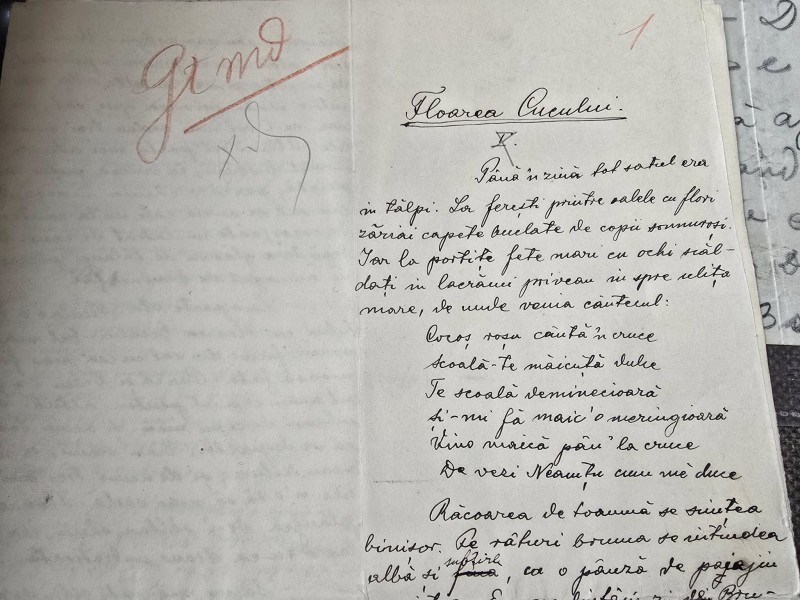 Gt md
1
Floarea Cucului.
V.
Până 'n ziuă tot satul era
in tălpi. La ferești printre oalele cu flori
zăriai capete buclate de copii somnuroși.
Iar la portițe fete mari cu ochi scăl-
dați in lacrămi priveau in spre ulița
mare, de unde venia cântecul:
Cocoș roșu cântă 'n cruce
scoală-te măicuță dulce
Te scoală deminecioară
și-mi fă maic' o meringioară
Vino maică pân' la cruce
De vezi Neamțu cum mĕ duce
Răcoarea de toamnă se simțea
binișor. Pe rături bruma se intindea
albă și subțire, ca o pânză de pajajin